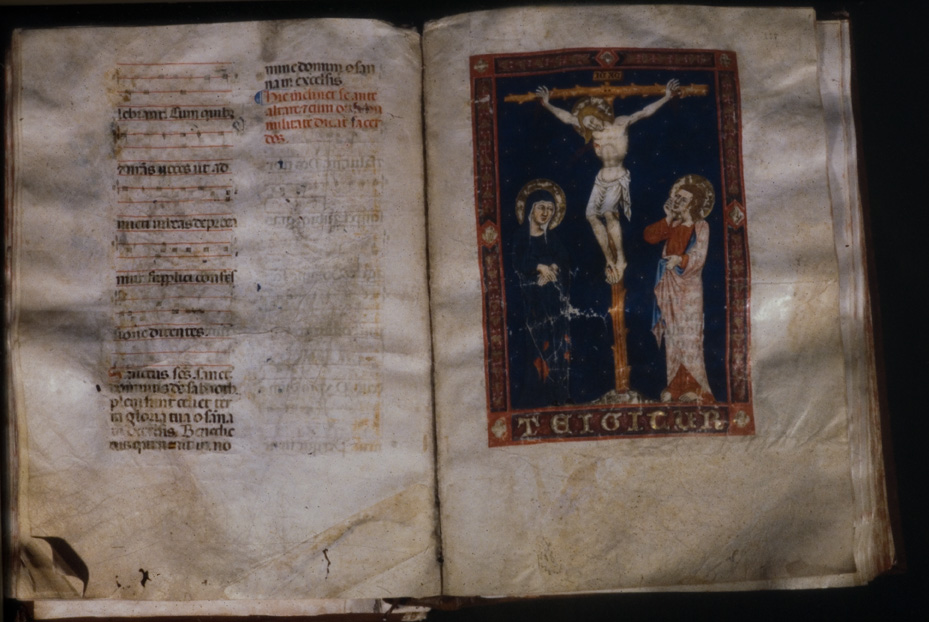 lebrant. Cum quib;
& nr̄as uoces ut ad
mitti iubeas depreca
mur. supplici confes
sione dicentes.
Sanctus scs. sanct.
dominus ds sabaoth.
pleni sunt celi et ter
ra gloria tua osāna
in excelsis. Benedic
tus qui uenit in no
mine domini osan
na in excelsis.
Hic inclinet se ante
altare & cum
militate dicat sacer
dos.
TE IGITUR